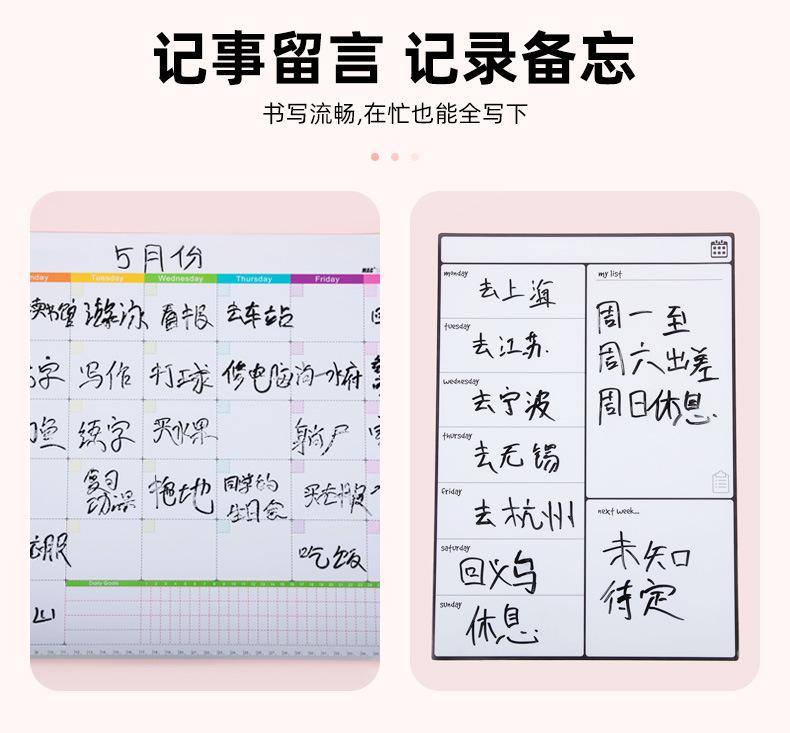 记事留言 记录备忘
书写流畅,在忙也能全写下
5月份
nday Tuesday Wednesday Thursday Friday
游泳 看书报 去车站
写作 打球 修电脑
练字 买水果
复习功课 拖地 同学的生日会
吃饭
衣服
Daily Goals
monday
去上海
tuesday
去江苏.
wednesday
去宁波
thursday
去无锡
friday
去杭州
saturday
回义乌
sunday
休息.
my list
周一至
周六出差
周日休息.
next week...
未知
待定